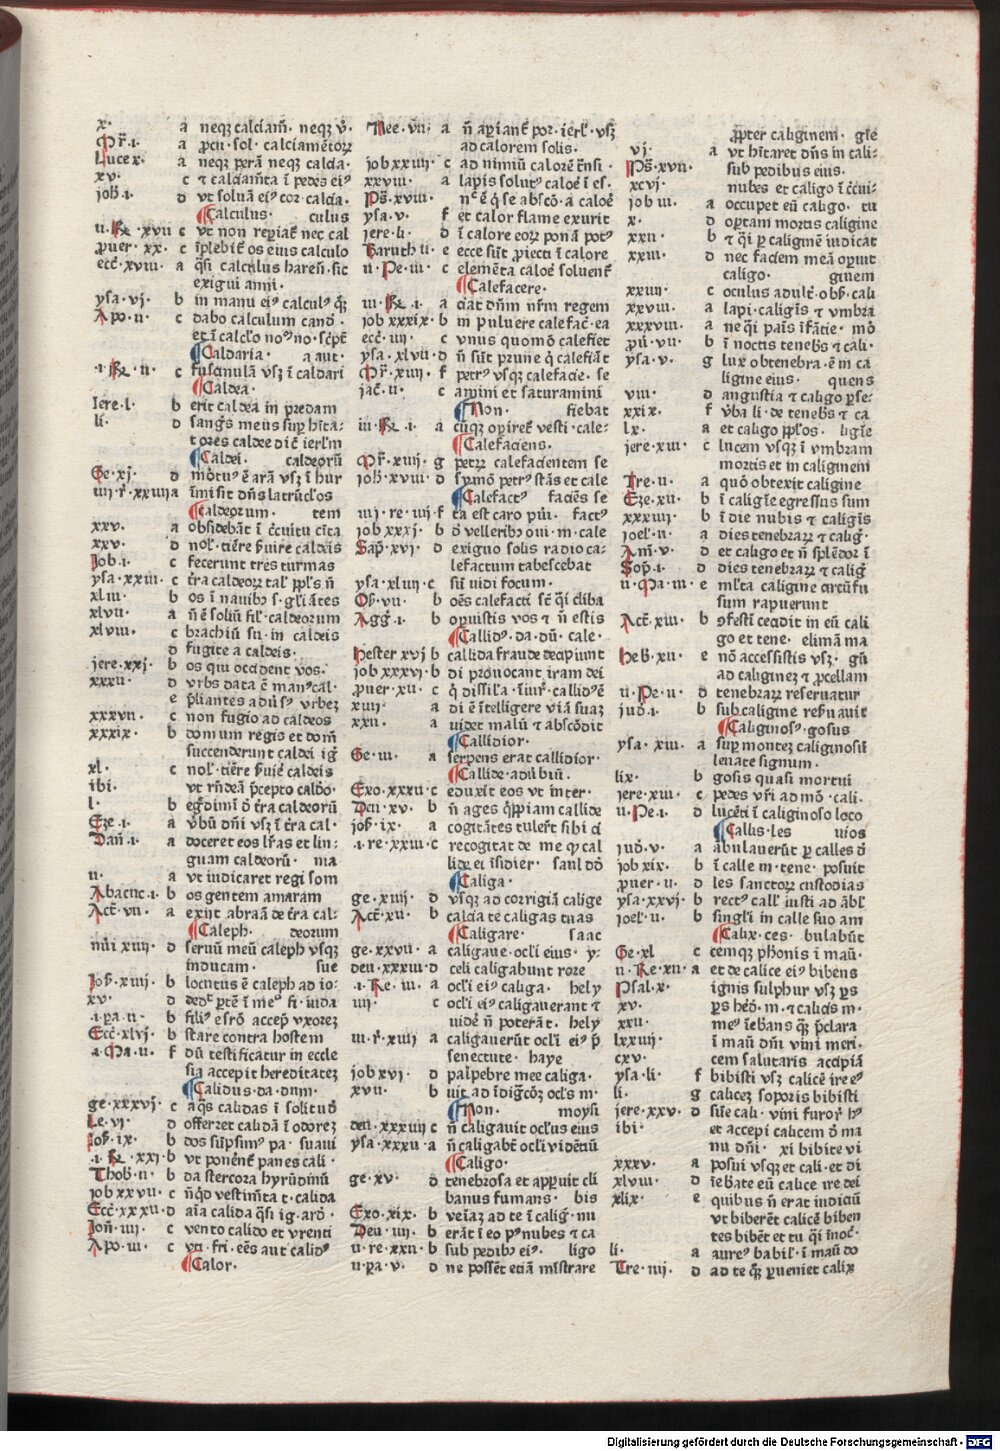 x· a neqꝫ calciam̄· neqꝫ v̄·
Mr̄·i· a ꝓcu·sol·calciamētoꝝ
Luce x· a neqꝫ perā neqꝫ calcia·
xv· c ⁊ calciam̄ta ī pedes eiꝰ
joh̄·i· d vt soluā eiꝰ cor·calcia·
¶Calculus· culus
ii·Re·xvii c vt non repiaƭ nec cal
ꝓuer·xx· c īplebiƭ os eius calculo
ecc̄·xviii· a q̄si calculus haren̄·sic
exigui anni·
ysa·vj· b in manu eiꝰ calculꝰ q̄ꝫ
Apo·ii· c dabo calculum cand·
et ī calclo noꝰno·sc̄pt
¶Caldaria· a aut·
·i·Re·ii· c fuscinulā vsꝫ ī caldari
¶Caldea·
Iere·l· b erit caldea in predam
li· d sang̉s meus suꝑ hīta-
tores caldee dic̄ ierlm̄
¶Caldei· caldeorū
Ge·xj· d mōtuꝰ ē arā vsꝫ ī hur
iiij·r̄·xxiiija īmisit dn̄s latrūclos
¶Caldeorum· tem
xxv· a obsidebāt ī c̄cuitu cīta
xxv· d nol̄·tiēre ẜuire caldeis
Job·i· c fecerunt tres turmas
ysa·xxiii· c t̄ra caldeoꝝ tal̄ ppl̄s n̄
xliii· b os ī nauibꝫ s·gl̄iātes
xlvii· a n̄ ē soliū fil̄·caldeorum
xlviii· c brachiū su·in caldeis
d fugite a caldeis·
jere·xxj· b os qui occident vos·
xxxii· d vrbs data ē manꝰcal·
e p̄liantes adūsꝰ vrbeꝫ
xxxvii· c non fugio ad caldeos
xxxix· b domum regis et dom̄
succenderunt caldei iḡ
xl· c nol̄·tiēre ẜuie caldeis
ibi· vt rn̄deā p̄cepto caldō·
l· b eg̉dimī d t̄ra caldeorū
Eze·i· a v̄bū dn̄i vsꝫ ī t̄ra cal·
Dan̄·i· a doceret eos lr̄as et lin-
guam caldeorū· ma
ii· a vt indicaret regi som
Abacuc·i· b os gentem amaram
Act̄·vii· a exijt abraā de t̄ra cal-
¶Caleph· deorum
nūi xiiij· d seruū meū caleph vsqꝫ
inducam· sue
Joh̄·xiiij· b locutus ē caleph ad io-
xv· d dedꝰ ꝑtē ī meꝰ fi·iuda
·i·pa·ii· b filiꝰ esrō accep̄ vxoreꝫ
Ecc̄·xlvj· b stare contra hostem
·i·Ma·ii· f dū testificatur in eccle
sia accepit hereditateꝫ
¶Calidus·da·dum·
ge·xxxvj· c aq̄s calidas ī solitud
Le·vj· d offerret calidā ī odoreꝫ
Joh̄·ix· b dos suꝑsimꝰ pa·suaui
·i·Re·xxj·b vt ponēnƭ panes cali·
Thob·ii· b da stercora hyrūdinū
job xxvii· c n̄q̄d vestim̄ta t·calida
Ecc̄·xxxii·d aīa calida q̄si ig·ard·
Jon̄·iiij· c vento calido et vrenti
Apo·iii· c vti·fri·ēes aut calidꝰ
¶Calor·
Nee·vii· a n̄ apianƭ por·ierl̄·vsꝫ
ad calorem solis·
job xxiiij· c ad nimiū calorē t̄nsi·
xxviii· a lapis solutꝰ caloē ī es·
Ps̄·xviii· nᶜ ē q̇ se abscō·a caloē
ysa·v· f et calor flame exurit
jere·li· d ī calore eoꝝ ponā potꝰ
Baruth ii· e ecce sūt ꝓiecti ī calore
ii·Pe·iii· c elemēta caloē soluenƭ
¶Calefacere·
iii·Re·i· a dn̄m nr̄m regem
job xxxix·b in puluere calefac̄·ea
ecc̄·iiij· c vnus quomō calefiet
ysa·xlvii·d n̄ sūt prune q̄ calefiāt
Mr̄·xiiij· f petrꝰ vsqꝫ calefacie·se
jac̄·ii· c amini et saturamini
¶Non· fiebat
iii·Re·i· a cūqꝫ opireƭ vesti·cale-
¶Calefaciens·
Mr̄·xiiij· g petꝝ calefacientem se
joh̄·xviii· d symō petrꝰ stās et cale
¶Calefactꝰ faciēs se
iiij·re·iiij·f ta est caro pūi· factꝰ
job xxxj· b d velleribꝫ oui·m·cale
Sap̄·xvj· d exiguo solis radio ca-
lefactum tabescebat
ysa·xliiij·c sū vidi focum·
Os̄·vii· b oēs calefacti sc̄ q̄i cliba
Agḡ·i· b opuistis vos ⁊ n̄ estis
¶Callidꝰ·da·dū· cale·
Hester xvj b callida fraude decipiunt
job xxxvj·b di prouocant iram dei
ꝓuer·xii· c q̇ dissila·īiur̄·callidꝰē
xiiij· a di ē ītelligere viā suaꝫ
xxii· a uidet malū ⁊ abscōdit
¶Callidior·
Ge·iii· a serpens erat callidior·
¶Callide·adūbiū·
Exo·xxxii·c eduxit eos vt inter·
Deu·xv· b n̄ ages q̄ppiam callide
joh̄·ix· a cogitātes tuler̄t sibi ci
·i·re·xxiii·c recogitat de me qꝫ cal
lide ei īsidier· saul dō
¶Caliga·
ge·xiiij· d vsqꝫ ad corrigiā calige
Act̄·xii· b calcia te caligas tuas
¶Caligare· saac
ge·xxvii· a caligaue·ocl̄i eius·y-
deu·xxxiii·d celi caligabunt rore
·i·Re·iii· a ocl̄i eiꝰ caliga·hely
iiij· c ocl̄i eiꝰ caligauerant ⁊
uidē n̄ poterāt·hely
iii·r̄·xiiij a caligauerūt ocl̄i eiꝰ p̄
senectute·haye
job xvj· d palpebre mee caliga·
xvii· b uit ad īdig̉cōꝫ ocl̄s m·
¶Non· moysi
deu·xxxiiij c n̄ caligauit ocl̄us eius
ysa·xxxii·a n̄ caligabt̄ ocl̄i vidētiū
¶Caligo·
ge·xv· d tenebrosa et apparuit cli
banus fumans· bis
Exo·xix· b veīaꝫ ad te ī calig̉·nu
Deu·iiij· b erāt ī eo pꝰ nubes ⁊ ca
ii·re·xxii·b sub pedibꝫ eiꝰ· ligo
ii·pa·v· d ne possēt etiā mīstrare
ꝓpter caliginem· gl̄e
vj· a vt hītaret dn̄s in cali-
Ps̄·xvii· sub pedibus eius·
xcvj· nubes et caligo ī c̄cui-
job iii· a occupet eū caligo· tu
x· d optam mortis caligine
xxii· b ⁊ q̄i ꝑ caliginē iudicat
xxiii· d nec faciem meā opuit
caligo· ginem
xxiiij· c oculus adulƭ·obẜ·cali
xxviii· a lapi·caligīs ⁊ vmbra
xxxviii· a neq̄i pāis īfātie·mō
ꝓū·vii· b ī noctis tenebẜ ⁊ cali·
ysa·v· g lux obtenebra·ē m ca
ligine eius· quens
viii· d angustia ⁊ caligo ꝑse-
xxix· f v̄ba li·de tenebẜ ⁊ ca
lx· a et caligo ppl̄os· ligīe
jere·xiii· c lucem vsqꝫ ī vmbram
mortis et in caliginem
Tre·ii· a quō obtexit caligine
Eze·xii· b ī caligīe egressus sum
xxxiiij· b ī die nubis ⁊ caligīs
joel·ii· a dies tenebraꝝ ⁊ calig̉·
Am̄·v· d et caligo et n̄ splēdor ī
Sop̄·i· d dies tenebraꝝ ⁊ calig̉
ii·Ma·iii· e ml̄ta caligine circūfu
sum rapuerunt
Act̄·xiii· b ꝯfestī cecidit in eū cali
go et tene· elimā ma
Heb̄·xii· e nō accessistis vsꝫ· gū
ad caligineꝫ ⁊ ꝓcellam
ii·Pe·ii· d tenebraꝝ reseruatur
jud·i· b sub caligine reẜuauit
¶Caliginosꝰ·gosus
ysa·xiii· a suꝑ monteꝫ caliginosū
leuate signum·
lix· b gosis quasi mortui
jere·xiii· c pedes vr̄i ad mō·cali·
ii·Pe·i· d lucēti ī caliginoso loco
¶Callis·les uios
jud·v· a ābulauerūt ꝑ calles d
job xix· b ī calle m·tene·posuit
ꝓuer·ii· d les sanctoꝝ custodias
ysa·xxvj· b rectꝰ call̄ iusti ad ābl̄
joel̄·ii· b singl̄i in calle suo am
¶Calix·ces· bulabūt
Ge·xl c cemqꝫ ph̄onis ī maū·
ii·Re·xii· a et de calice eiꝰ bibens
Psal·x· ignis sulphur vsꝫ ꝑs
xv· ꝑs hēd·m·⁊ calicis m·
xxii· meꝰ īeb̄ans q̄ꝫ p̄clara
lxxiiij· ī maū dn̄i vini meri·
cxv· cem salutaris accipiā
ysa·li· f bibisti vsꝫ calicē ireeꝰ
li· g caliceꝫ soporis bibisti
jere·xxv· d sūe cali·vini furor̄ hꝰ
ibi· et accepi calicem d ma
nu dn̄i· xi bibite vi
xxxv· a posui vsqꝫ et cali·et di
xlviii· d īeb̄ate eū calice ire dei
xlix· e quibus n̄ erat iudiciū
vt biberēt calicē biben
tes bibēt et tu q̄i īnoc̄·
li· a aureꝰ babil̄·ī maū do
Tre·iiij· d ad te q̄ꝫ ꝑueniet calix
Digitalisierung gefördert durch die Deutsche Forschungsgemeinschaft - DFG